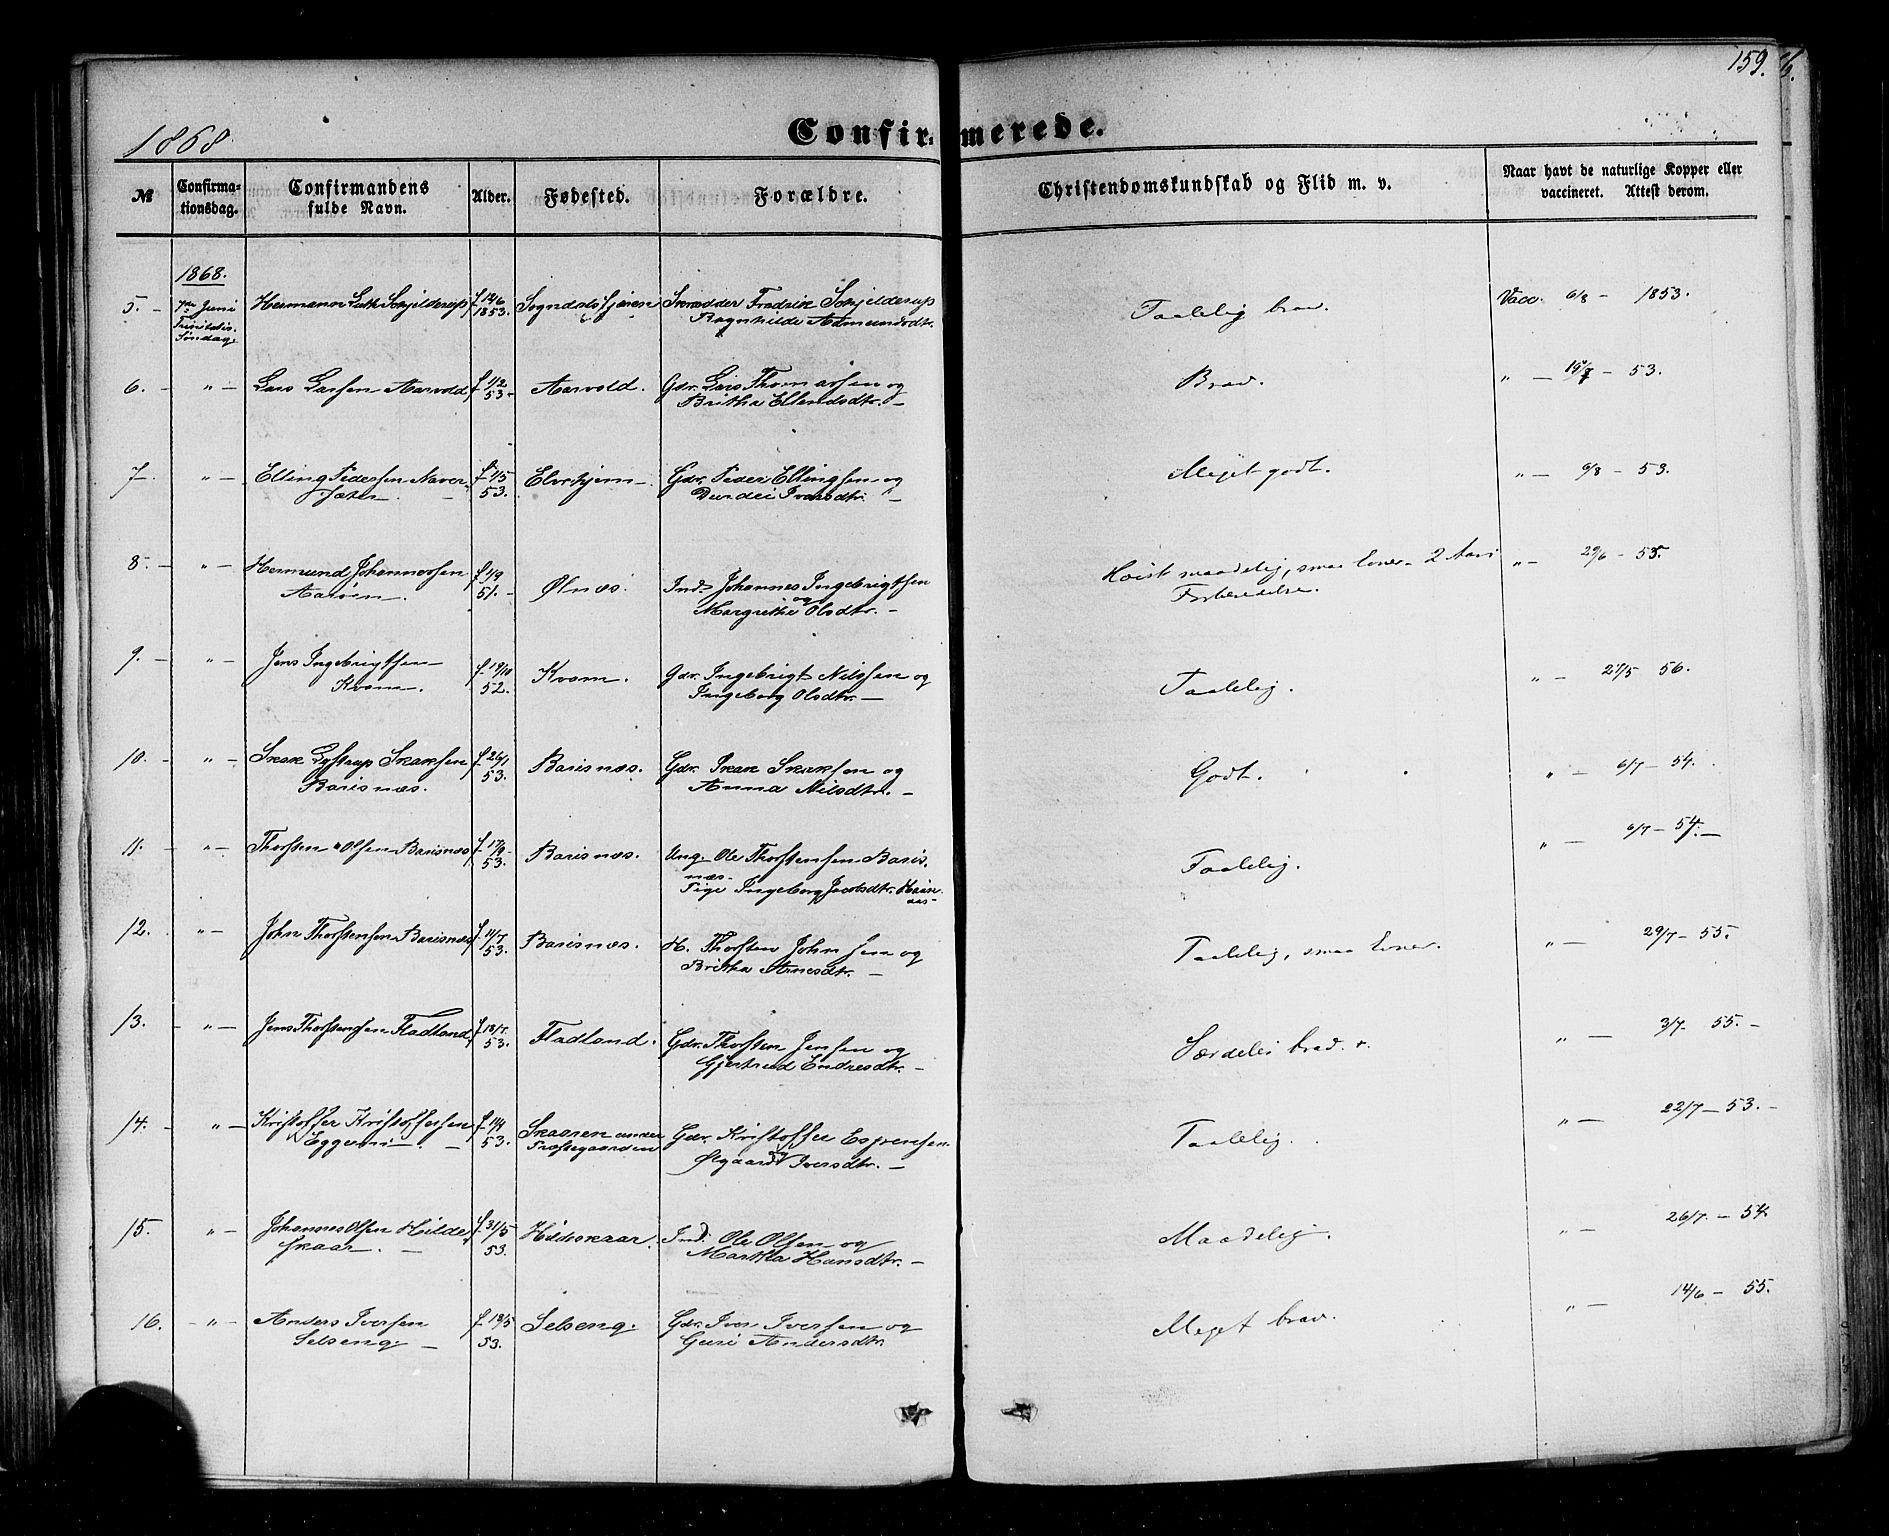 159.
1868.
Confirmerede.
№
Confirmationsdag.
Confirmandens fulde Navn.
Alder.
Fødested.
Forældre.
Christendomskundskab og Flid m. v.
Naar havt de naturlige Kopper eller vaccineret. Attest derom.
1868.
5. 7de Juni Hermann Schjelderup f 14/6 Sogndalsfjæren Skrædder Fredrik Schjelderup Taalelig brav. Vacc. 6/8 - 1853.
Trinitatis Søndag. 1853. Ragnhilde Admundsdtr.
6. " Lars Larsen Aarvold f 1/2 Aarvold. Gdr. Lars Thomassen og Brav. " 53.
53. Britha Ellendsdtr.
7. " Elling Pedersen Naver f 1/5 Elvehjem Gdr. Peder Ellingsen og Meget godt. " 6/8 - 53.
sæter. 53. Durdei Iversdtr.
8. " Hermund Johannessen f 1/9 Ølnæs. Ind. Johannes Ingebrigtsen Høist maadelig, smaa Evner - 2 Aars " 29/6 - 55.
Aarøen. 51. og Margrethe Olsdtr. Forberedelse.
9. " Jens Ingebrigtsen f 19/10 Kvam. Gdr. Ingebrigt Nilssen og Taalelig. " 27/5 56.
Kvam. 52. Ingeborg Olsdtr.
10. " Skak Lystrup Skaksen f 26/1 Barsnæs. Gdr. Skak Skaksen og Godt. " 6/7 - 54.
Barsnæs. 53. Anna Nilsdtr.
11. " Thorsten Olsen Barsnæs f 17/9 Barsnæs. Ung. Ole Thorstensen Bars- Taalelig. " 6/7 - 54.
53. næs. Pige Ingeborg Jacobsdtr.
12. " John Thorstensen Barsnæs f 11/7 Barsnæs. H. Thorsten Johnsen og Taalelig, smaa Evner. " 29/7 - 55.
53. Britha Arnesdtr.
13. " Jens Thorstensen Fladland f 18/7 Fladland. Gdr. Thorsten Jensen og Særdeles brav. " 3/7 - 55.
53. Gjertrud Endresdtr.
14. " Kristoffer Kristoffersen f 14/4 Skaaren under Gdr. Kristoffer Espensen Taalelig. " 22/7 - 53.
Eggum. 53. Præstegaarden og Ølgaard Iversdtr.
15. " Johannes Olsen Hilde- f 31/5 Hildeskaar. Ind. Ole Olsen og Maadelig. " 26/7 - 54.
skaar. 53. Martha Hansdtr.
16. " Anders Iversen f 13/5 Selseng. Gdr. Iver Iversen og Meget brav. " 14/6 - 55.
Selseng 53. Guri Andersdtr.